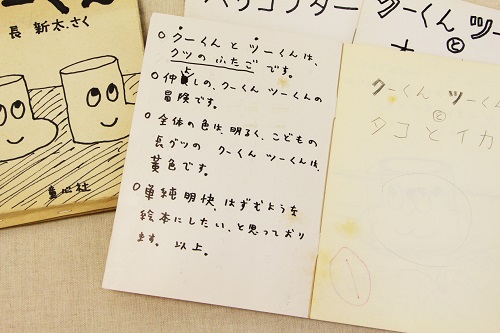 長 新太.さく
童心社
○クーくんとツーくんは、
クツのふたごです。
○仲よしの、クーくんツーくんの
冒険です。
○全体の色は、明るく、こどもの
長グツの クーくんツーくんは、
黄色です。
○単純明快、はずむような
絵本にしたい、と思っており
ます。以上。
ヘリコプター
クーくん ツー
と
クーくん ツーくん
と
タコとイカ